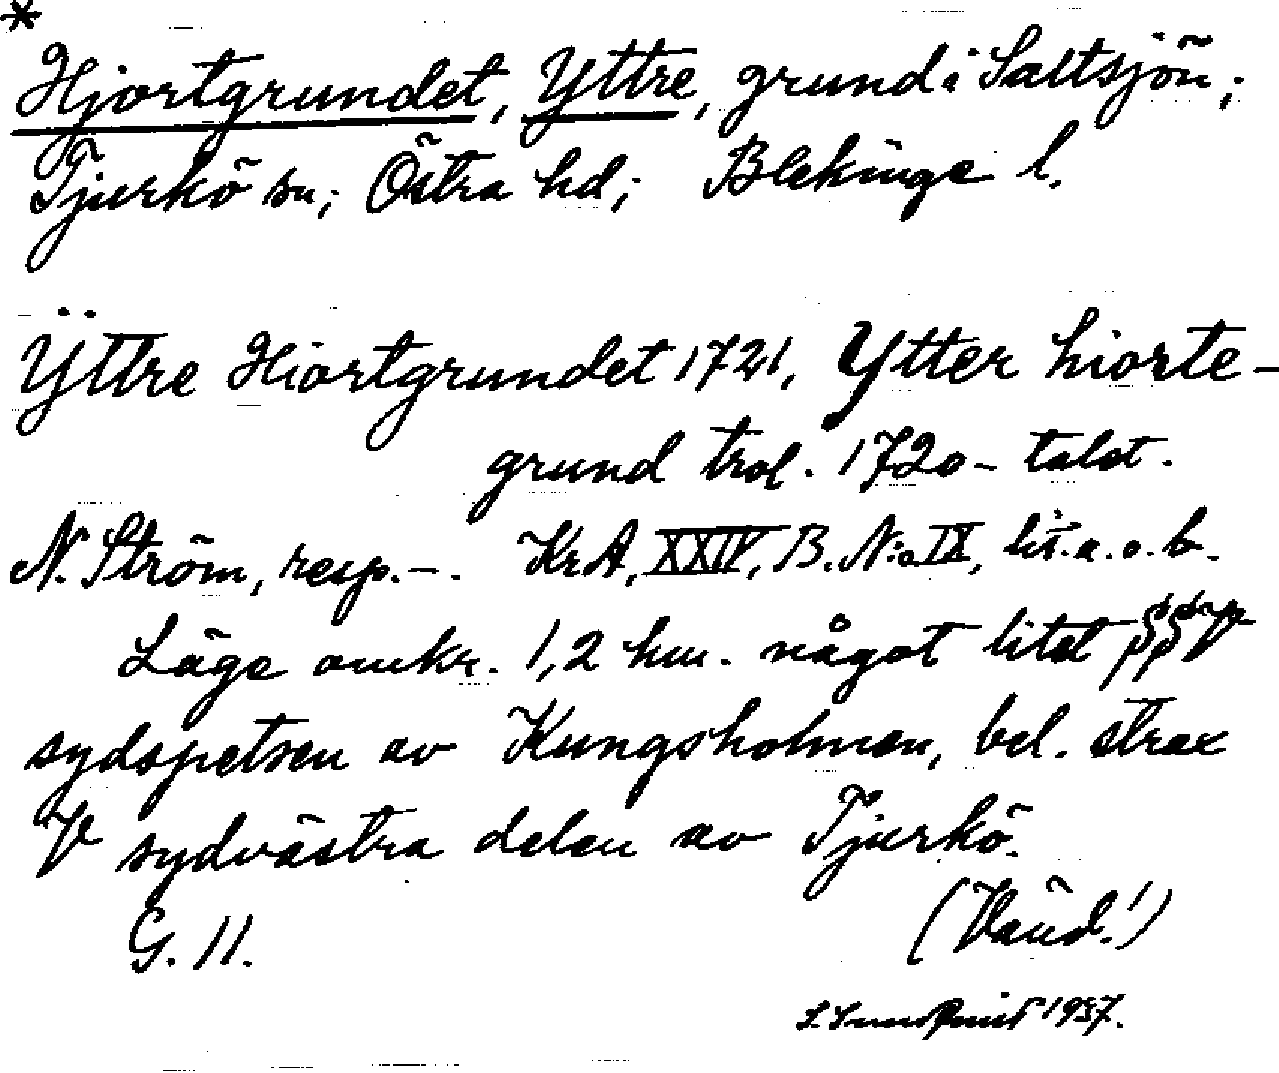 *
Hjortgrundet, Yttre, grund i Saltsjön;
Tjurkö sn; Östra hd; Blekinge l.
Yttre Hiortgrundet 1721, Ytter hiorte-
grund trol. 1720-talet.
N. Ström, resp. -. KrA, XXIV, B. N:o IX, lit. a. o. b.
Läge omkr. 1,2 km. något litet SSV
sydspetsen av Kungsholmen, bel. strax
V sydvästra delen av Tjurkö.
G. 11. (Vänd!)
1937.